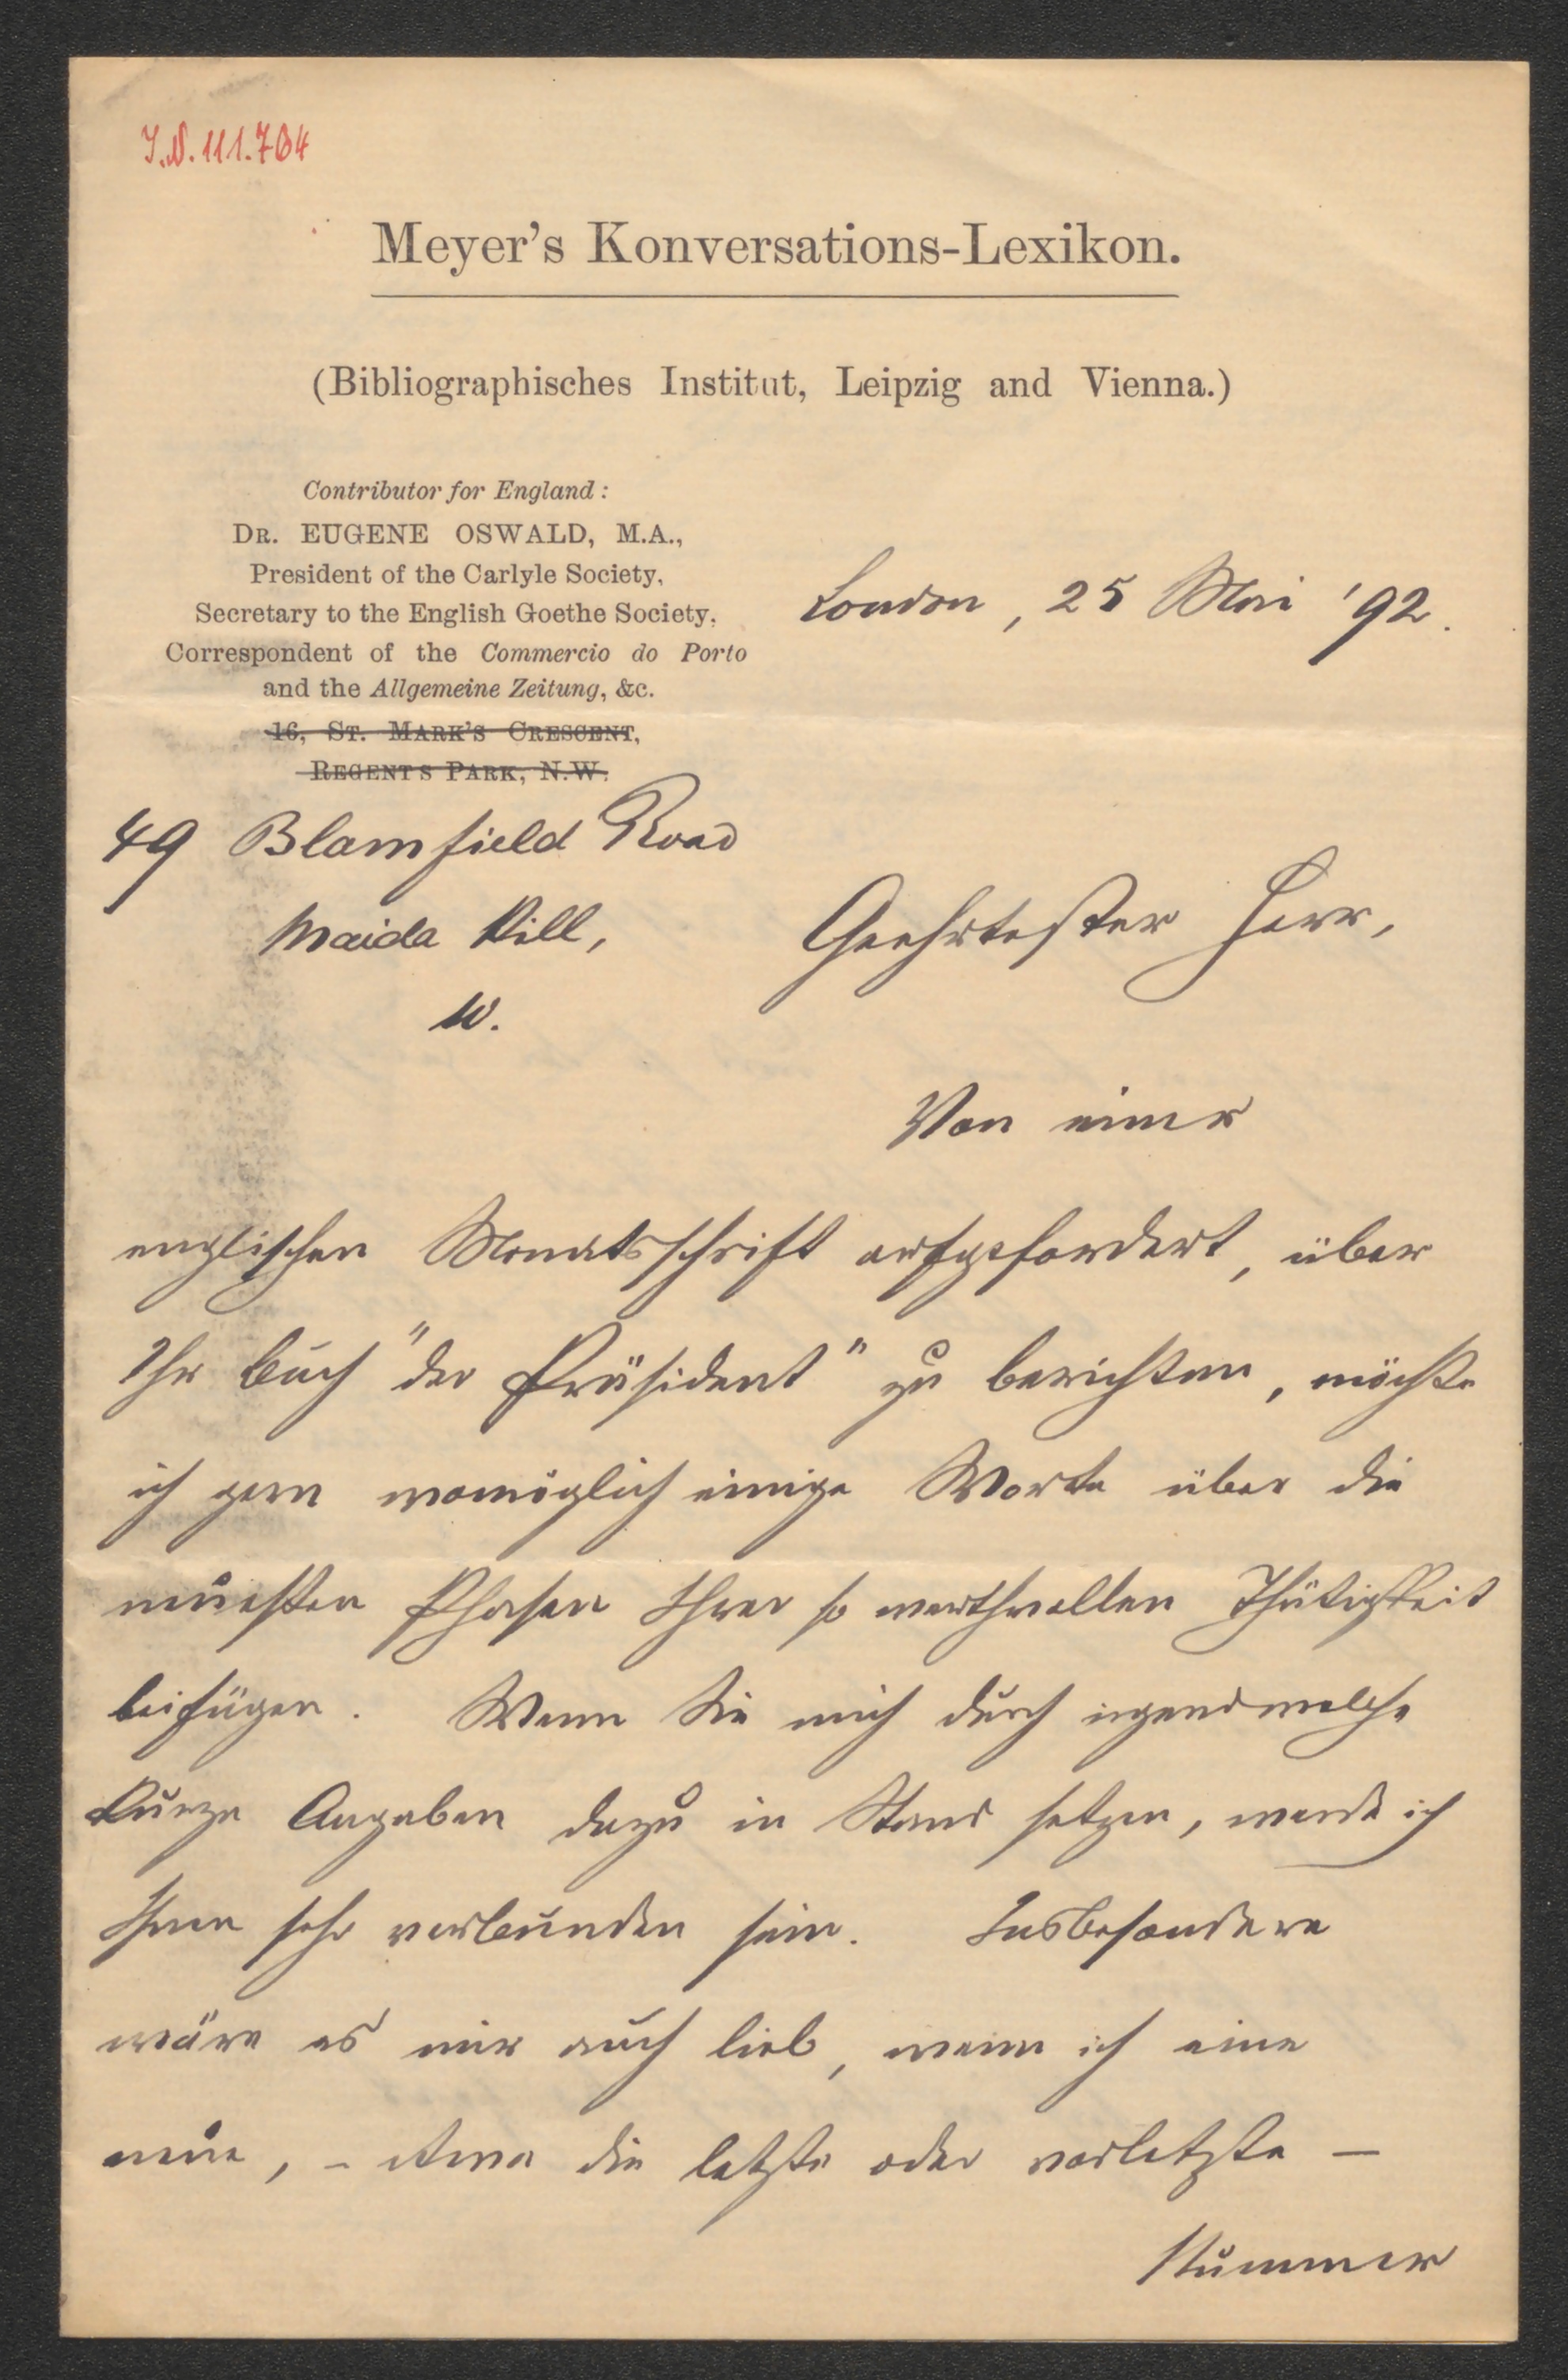 I.N. 111.764
Meyer's Konversations-Lexikon.
(Bibliographisches Institut, Leipzig and Vienna.)
Contributor for England:
DR. EUGENE OSWALD, M.A.,
President of the Carlyle Society,
Secretary to the English Goethe Society,
Correspondent of the Commercio do Porto
and the Allgemeine Zeitung, &c.
16, ST. MARK'S CRESCENT,
REGENTS PARK, N.W.
London, 25 Mai '92.
49 Blomfield Road
Maida Hill,
W.
Geehrtester Herr,
Von einer
englischen Monatsschrift aufgefordert, über
Ihr Buch "der Präsident" zu berichten, möchte
ich gern womöglich einige Worte über die
neuesten Phasen Ihrer so werthvollen Thätigkeit
beifügen. Wenn Sie mich durch irgendwelche
kurze Angaben dazu in Stand setzen, werde ich
Ihnen sehr verbunden sein. Insbesondere
wäre es mir auch lieb, wenn ich eine
neue, - etwa die letzte oder vorletzte -
Nummer